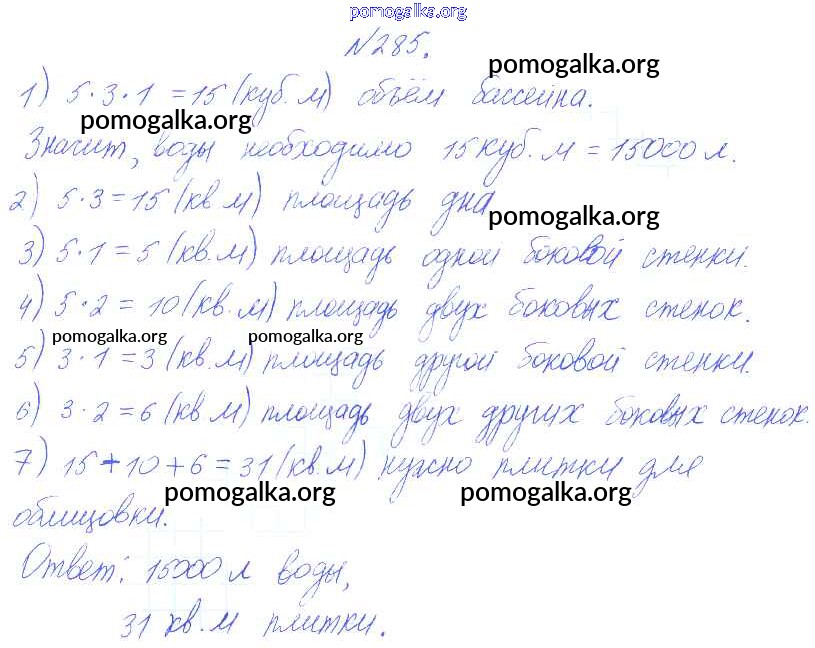 pomogalka.org
№285.
pomogalka.org
1) 5·3·1 = 15 (куб. м) объём бассейна.
pomogalka.org
Значит, воды необходимо 15 куб. м = 15000 л.
2) 5·3 = 15 (кв. м) площадь дна
pomogalka.org
3) 5·1 = 5 (кв. м) площадь одной боковой стенки.
4) 5·2 = 10 (кв. м) площадь двух боковых стенок.
pomogalka.org pomogalka.org
5) 3·1 = 3 (кв. м) площадь другой боковой стенки.
6) 3·2 = 6 (кв м) площадь двух других боковых стенок.
7) 15 + 10 + 6 = 31 (кв. м) нужно плитки для
pomogalka.org pomogalka.org
облицовки.
Ответ: 15000 л воды,
31 кв. м плитки.